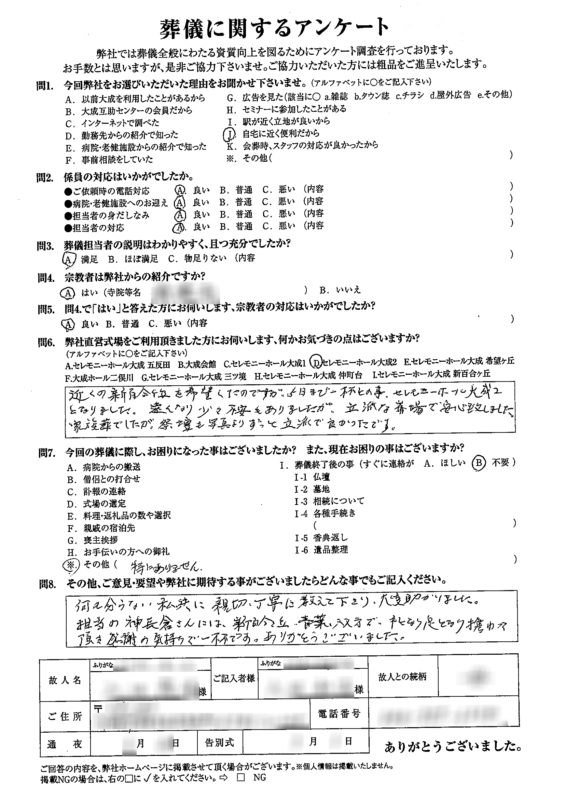 葬儀に関するアンケート
弊社では葬儀全般にわたる資質向上を図るためにアンケート調査を行っております。
お手数とは思いますが、是非ご協力下さいませ。ご協力いただいた方には粗品をご進呈いたします。
問1. 今回弊社をお選びいただいた理由をお聞かせ下さいませ。(アルファベットに○をご記入下さい)
A. 以前大成を利用したことがあるから G. 広告を見た(該当に○ a.雑誌 b.タウン誌 c.チラシ d.屋外広告 e.その他)
B. 大成互助センターの会員だから H. セミナーに参加したことがある
C. インターネットで調べた I. 駅が近く立地が良いから
D. 勤務先からの紹介で知った J 自宅に近く便利だから
E. 病院・老健施設からの紹介で知った K. 会葬時、スタッフの対応が良かったから
F. 事前相談をしていた ※. その他( )
問2. 係員の対応はいかがでしたか。
●ご依頼時の電話対応 A. 良い B. 普通 C. 悪い (内容 )
●病院・老健施設へのお迎え A. 良い B. 普通 C. 悪い (内容 )
●担当者の身だしなみ A. 良い B. 普通 C. 悪い (内容 )
●担当者の対応 A. 良い B. 普通 C. 悪い (内容 )
問3. 葬儀担当者の説明はわかりやすく、且つ充分でしたか?
A. 満足 B. ほぼ満足 C. 物足りない (内容 )
問4. 宗教者は弊社からの紹介ですか?
A はい (寺院等名 ) B. いいえ
問5. 問4.で「はい」と答えた方にお伺いします、宗教者の対応はいかがでしたか?
A 良い B. 普通 C. 悪い (内容
問6. 弊社直営式場をご利用頂きました方にお伺いします、何かお気づきの点はございますか?
(アルファベットに○をご記入下さい)
A.セレモニーホール大成 五反田 B.大成会館 C.セレモニーホール大成1 D セレモニーホール大成2 E.セレモニーホール大成 希望ヶ丘
F.大成ホール二俣川 G.セレモニーホール大成 三ツ境 H.セレモニーホール大成 仲町台 I.セレモニーホール大成 新百合ヶ丘
近くの新百合ヶ丘を希望してたのですが、 一杯との事、セレモニーホール大成2
となりました。遠くなり少々不安もありましたが、立派な斎場で安心致しました。
家族葬でしたが、祭壇も写真よりずっと立派で良かったです。
問7. 今回の葬儀に際し、お困りになった事はございましたか? また、現在お困りの事はございますか?
A. 病院からの搬送 I. 葬儀終了後の事 (すぐに連絡が A. ほしい B 不要)
B. 僧侶との打合せ I-1 仏壇
C. 訃報の連絡 I-2 墓地
D. 式場の選定 I-3 相続について
E. 料理・返礼品の数や選択 I-4 各種手続き
F. 親戚の宿泊先 ( )
G. 喪主挨拶 I-5 香典返し
H. お手伝いの方への御礼 I-6 遺品整理
※ その他( 特にありません。 )
問8. その他、ご意見・要望や弊社に期待する事がございましたらどんな事でもご記入ください。
何も分らない私共に親切、丁寧に教えて下さり、大変助かりました。
担当の神長倉さんには、新百合ヶ丘、青葉 
頂き感謝の気持ちで一杯です。ありがとうございました。
故人名 ふりがな 様 ご記入者様 ふりがな 様 故人との続柄
ご住所 〒 電話番号
通夜 月 日 告別式 月 日 ありがとうございました。
ご回答の内容を、弊社ホームページに掲載させて頂く場合がございます。※個人情報は掲載いたしません。
掲載NGの場合は、右の□に✓を入れてください。⇨ □ NG